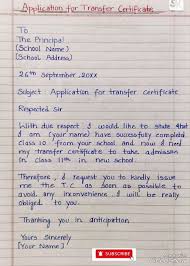 Application for Transfer Certificate
To
The Principal
(School Name)
(School Address)
26th September, 20XX
Subject: Application for transfer Certificate
Respected Sir
With due respect I would to state that
I am (your name) have successfully completed
class 10 from your school and now I need
my transfer certificate to take admission
in class 11th in new school.
Therefore, I request you to kindly issue
me the T.C as soon as possible to
avoid any inconvenience. I will be really
obliged to you.
Thanking you in anticipation
Yours Sincerely
[Your Name]
SUBSCRIBE